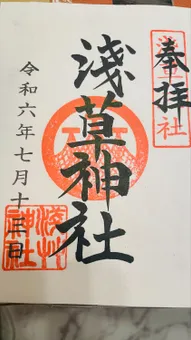 奉拝
浅草神社
令和六年七月十三日
浅草
神社